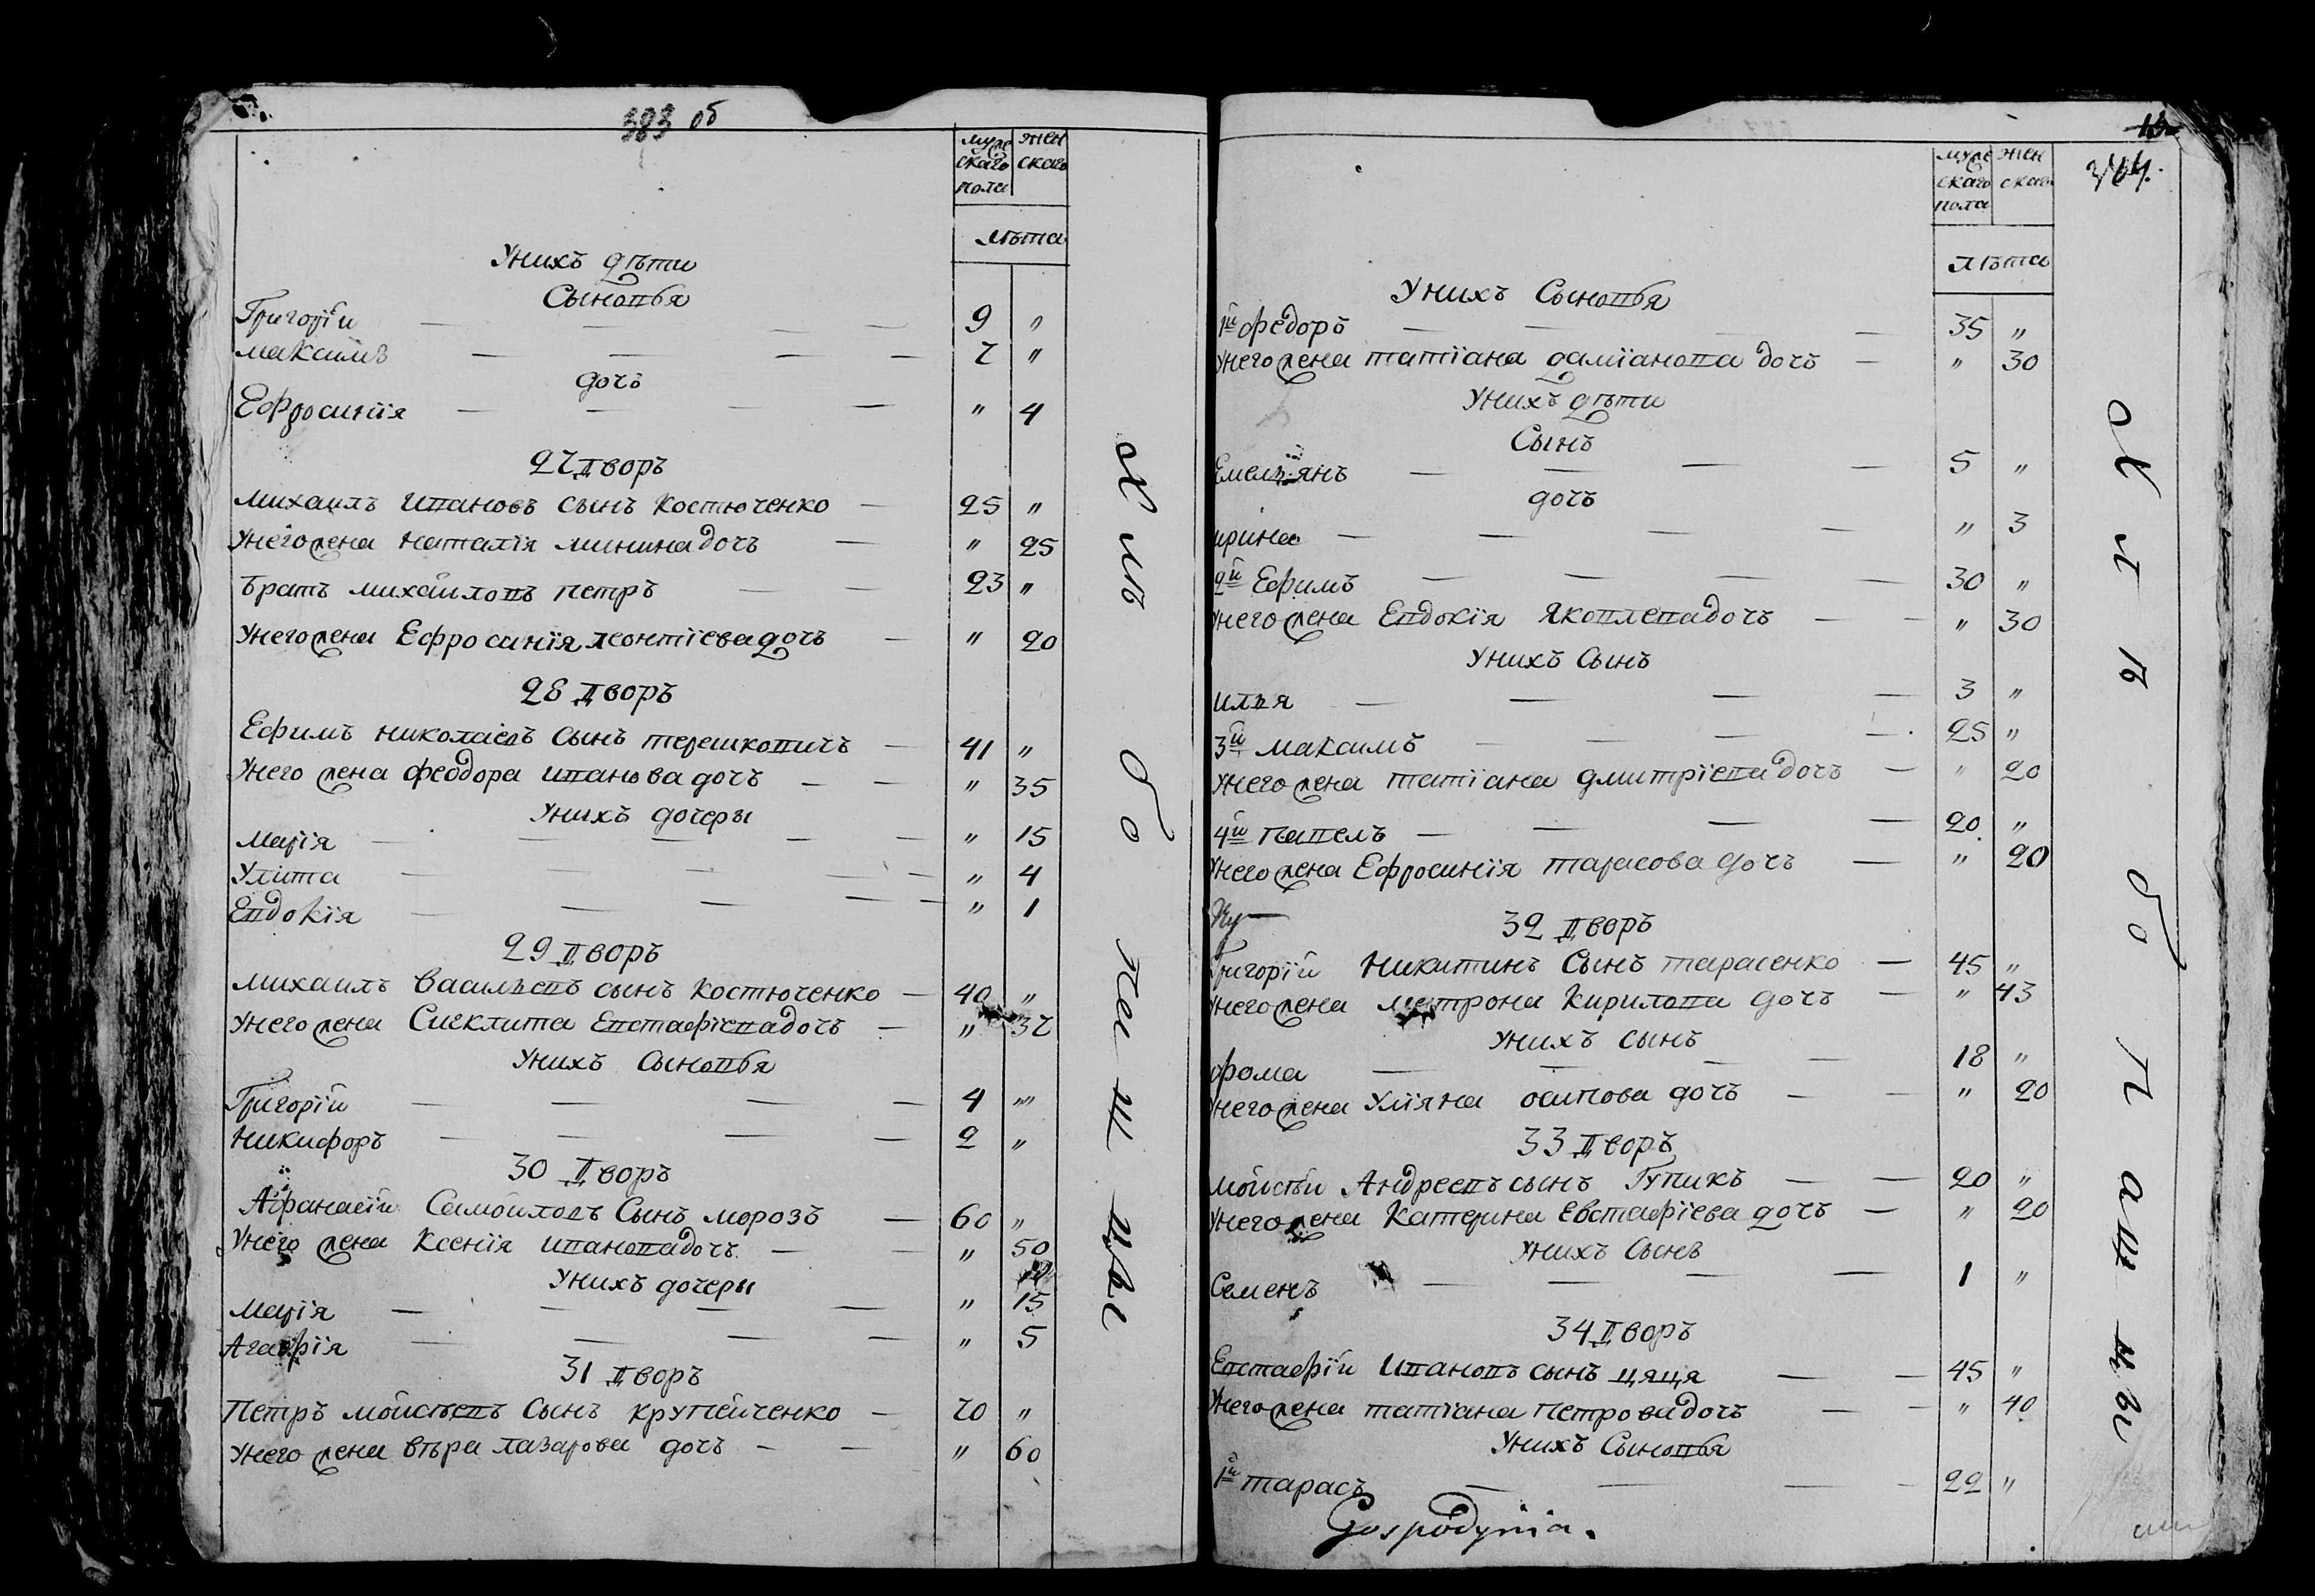 383 об
муже женскаго скаго
пола
лѣта
У нихъ дѣти
Сыновья
Григорїй — — — — 9 "
максимъ — — — — 7 "
дочь
Ефросинїя — — — — " 4
27 дворъ
михаилъ ивановъ сынъ Костюченко — 25 "
У него жена наталїя минина дочь — " 25
братъ михайловъ петръ — — 23 "
У него жена Ефросинїя леонтїева дочь — " 20
28 дворъ
Ефимъ николаевъ сынъ терешковичъ — 41 "
У него жена феодора иванова дочь — — " 35
У нихъ дочеры
марїя — — — — — " 15
Улита — — — — — " 4
Евдокїя — — — — — " 1
29 дворъ
михаилъ васильевъ сынъ костюченко — 40 "
У него жена Сигклита Евстафїева дочь — " 37
У нихъ Сыновья
Григорїй — — — — 4 "
Никифоръ — — — — 2 "
30 дворъ
Афанасїй Самойловъ Сынъ морозъ — 60 "
У него жена Ксенїя иванова дочь — — " 50
У нихъ дочеры
марїя — — — — " 15
Агафїя — — — — " 5
31 дворъ
Петръ мойсѣевъ Сынъ крупейченко — 70 "
У него жена вѣра лазарова дочь — — " 60
хлѣбопашцы
муже женскаго скаго
пола
лѣта
У нихъ Сыновья
1й федоръ — — — 35 "
У него жена татїана дамїанова дочь — " 30
У нихъ дѣти
Сынъ
Емелїянъ — — — — 5 "
дочь
ирина — — — — " 3
2й Ефимъ — — — — 30 "
У него жена Евдокїя Яковлева дочь — — " 30
У нихъ Сынъ
илья — — — — 3 "
3й максимъ — — — — 25 "
У него жена татїана дмитрїева дочь — " 20
4й павелъ — — — — 20 "
У него жена Ефросинїя тарасова дочь — " 20
32 дворъ
Григорїй Никитинъ Сынъ тарасенко — 45 "
У него жена матрона кирилова дочь — " 43
У нихъ сынъ
фома — — — — 18 "
У него жена Улїяна осипова дочь — — " 20
33 дворъ
мойсѣй Андреевъ сынъ Гупикъ — — 20 "
У него жена Катерина Евстафїева дочь — " 20
У нихъ Сынъ
Семенъ — — — — 1 "
34 дворъ
Евстафїй ивановъ сынъ цяця — — 45 "
У него жена татїана петрова дочь — — " 40
У нихъ Сыновья
1й тарасъ — — — — 22 "
Gospodynia.
хлѣбопащцы